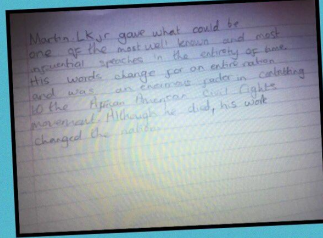 Martin. Lk jr gave what could be
one of the most well known and most
influential speeches in the entirety of time.
His words change for an entire nation
and was an enormous factor in contributing
to the African American Civil Rights
movement. Although he died, his work
changed the nation.